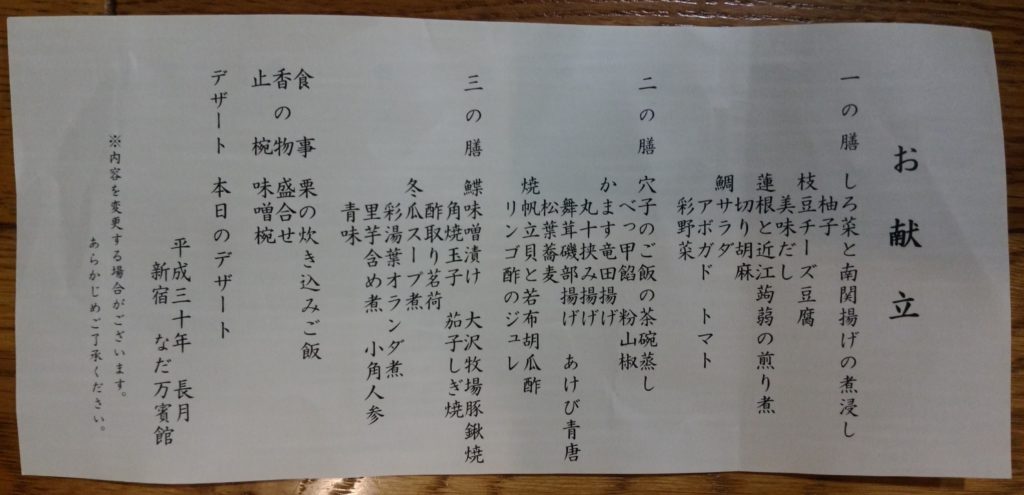 お献立
一の膳 しろ菜と南関揚げの煮浸し
柚子
枝豆チーズ豆腐
美味だし
蓮根と近江蒟蒻の煎り煮
切り胡麻
鯛サラダ
アボガド トマト
彩野菜
二の膳 穴子のご飯の茶碗蒸し
べっ甲餡 粉山椒
かます竜田揚げ
丸十挟み揚げ
舞茸磯部揚げ あけび青唐
松葉蕎麦
焼帆立貝と若布胡瓜酢
リンゴ酢のジュレ
三の膳 鰈味噌漬け 大沢牧場豚鍬焼
角焼玉子 茄子しぎ焼
酢取り茗荷
冬瓜スープ煮
彩湯葉オランダ煮
里芋含め煮 小角人参
青味
食事 栗の炊き込みご飯
香の物 盛合せ
止椀 味噌椀
デザート 本日のデザート
平成三十年 長月
新宿 なだ万賓館
※内容を変更する場合がございます。
あらかじめご了承ください。